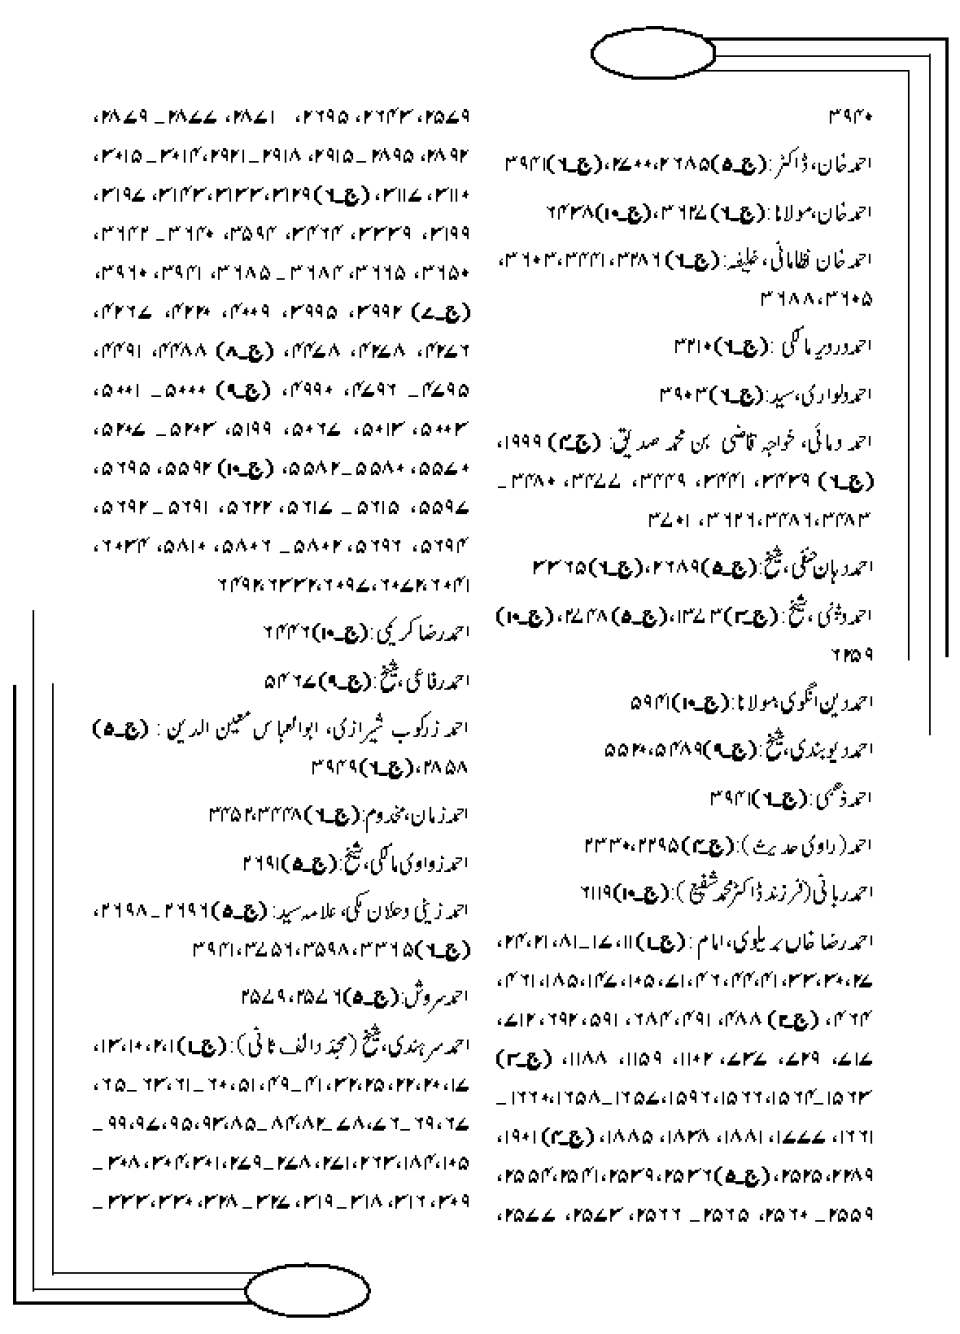 ۳۹۴۰
احمد خان، ڈاکٹر: (ج_۵) ۲۶۸۵، ۲۷۰۰، (ج_۶) ۳۹۴۱
احمد خان، مولانا: (ج_۶) ۳۶۲۷، (ج_۱۰) ۶۴۳۸
احمد خان نظامانی، خلیفہ: (ج_۶) ۳۲۸۶، ۳۴۴۱، ۳۶۰۳،
۳۶۰۵، ۳۶۸۸
احمد دردیر مالکی: (ج_۶) ۳۲۱۰
احمد دلواری، سید: (ج_۶) ۳۹۰۳
احمد دمائی، خواجہ قاضی بن محمد صدیق: (ج_۴) ۱۹۹۹،
(ج_۶) ۳۴۳۹، ۳۴۴۱، ۳۴۴۹، ۳۴۷۷، ۳۴۸۰_
۳۴۸۳، ۳۴۸۶، ۳۶۲۶، ۳۷۰۱
احمد دہان حنفی، شیخ: (ج_۵) ۲۶۸۹، (ج_۶) ۳۳۶۵
احمد دیثنی، شیخ: (ج_۳) ۱۳۷۳، (ج_۵) ۲۷۴۸، (ج_۱۰)
۶۲۵۹
احمد دین انگوی مولانا: (ج_۱۰) ۵۹۴۱
احمد دیوبندی، شیخ: (ج_۹) ۵۴۸۹، ۵۵۲۰
احمد ذہبی: (ج_۶) ۳۹۴۱
احمد (راوی حدیث): (ج_۴) ۲۲۹۵، ۲۳۳۰
احمد ربانی (فرزند ڈاکٹر محمد شفیع): (ج_۱۰) ۶۱۱۹
احمد رضا خاں بریلوی، امام: (ج_۱) ۱۱، ۱۷_۸۱، ۲۱، ۲۴،
۲۷، ۳۰، ۳۳، ۴۱، ۴۴، ۴۶، ۷۱، ۱۰۵، ۱۴۷، ۱۸۵، ۴۶۱،
۴۶۴، (ج_۲) ۴۸۸، ۴۹۱، ۶۸۴، ۵۹۱، ۶۹۲، ۷۱۲،
۷۱۷، ۷۲۹، ۷۳۷، ۱۱۰۲، ۱۱۵۹، ۱۱۸۸، (ج_۳)
۱۵۶۳_۱۵۶۴، ۱۵۶۶، ۱۵۹۶، ۱۶۵۷، ۱۶۵۸، ۱۶۶۰_
۱۶۶۱، ۱۷۷۷، ۱۸۸۱، ۱۸۳۸، ۱۸۸۵، (ج_۴) ۱۹۰۱،
۲۲۸۹، ۲۵۲۵، (ج_۵) ۲۵۳۶، ۲۵۳۹، ۲۵۴۱، ۲۵۵۴،
۲۵۵۹_ ۲۵۶۰، ۲۵۶۵_ ۲۵۶۶، ۲۵۷۳، ۲۵۷۷،
۲۵۷۹، ۲۶۴۳، ۲۶۹۵، ۲۸۷۱، ۲۸۷۷_ ۲۸۷۹،
۲۸۹۲، ۲۸۹۵_۲۹۱۵، ۲۹۱۸_۲۹۲۱، ۳۰۱۴_۳۰۱۵،
۳۱۱۰، ۳۱۱۷، (ج_۶) ۳۱۲۹، ۳۱۳۳، ۳۱۴۳، ۳۱۹۷،
۳۱۹۹، ۳۳۳۹، ۳۴۶۴، ۳۵۹۴، ۳۶۴۰_ ۳۶۴۲،
۳۶۵۰، ۳۶۶۵، ۳۶۸۴_ ۳۶۸۵، ۳۹۴۱، ۳۹۶۰،
(ج_۷) ۳۹۹۲، ۳۹۹۵، ۴۰۰۹، ۴۲۲۰، ۴۲۶۷،
۴۲۷۶، ۴۲۷۸، ۴۴۷۸، (ج_۸) ۴۴۸۸، ۴۴۹۱،
۴۶۹۵_ ۴۷۹۶، ۴۹۹۰، (ج_۹) ۵۰۰۰_ ۵۰۰۱،
۵۰۰۳، ۵۰۱۳، ۵۰۶۷، ۵۱۹۹، ۵۲۰۳_ ۵۲۰۷،
۵۵۷۰، ۵۵۸۰_۵۵۸۲، (ج_۱۰) ۵۵۹۲، ۵۶۹۵،
۵۵۹۷، ۵۶۱۵_ ۵۶۱۷، ۵۶۲۲، ۵۶۹۱_۵۶۹۲،
۵۶۹۴، ۵۶۹۶، ۵۸۰۲_ ۵۸۰۶، ۵۸۱۰، ۶۰۳۴،
۶۰۴۱، ۶۰۷۲، ۶۰۹۷، ۶۳۳۲، ۶۴۹۲
احمد رضا کریمی: (ج_۱۰) ۶۴۴۶
احمد رفاعی، شیخ: (ج_۹) ۵۴۶۷
احمد زرکوب شیرازی، ابوالعباس معین الدین: (ج_۵)
۲۸۵۸، (ج_۶) ۳۹۴۹
احمد زمان، مخدوم: (ج_۶) ۳۴۴۸، ۳۴۵۲
احمد زواوی مالکی، شیخ: (ج_۵) ۲۶۹۱
احمد زینی دحلان مکی، علامہ سید: (ج_۵) ۲۶۹۶_۲۶۹۸،
(ج_۶) ۳۳۶۵، ۳۵۹۸، ۳۷۵۶، ۳۹۴۱
احمد سروش: (ج_۵) ۲۵۷۶، ۲۵۷۹
احمد سرہندی، شیخ (مجدد الف ثانی): (ج_۱) ۱، ۲، ۱۰، ۱۳،
۱۷، ۲۰، ۲۲، ۲۵، ۳۲، ۴۱_۴۹، ۵۱، ۶۰_۶۱، ۶۳_۶۵،
۶۷، ۶۹_۷۶، ۷۸_۸۲، ۸۴_۸۵، ۹۳، ۹۵، ۹۷، ۹۹_
۱۰۵، ۱۸۴، ۲۶۳، ۲۷۱، ۲۷۸_۲۷۹، ۳۰۱، ۳۰۴، ۳۰۸_
۳۰۹، ۳۱۶، ۳۱۸_۳۱۹، ۳۲۷_۳۲۸، ۳۳۰، ۳۳۳_